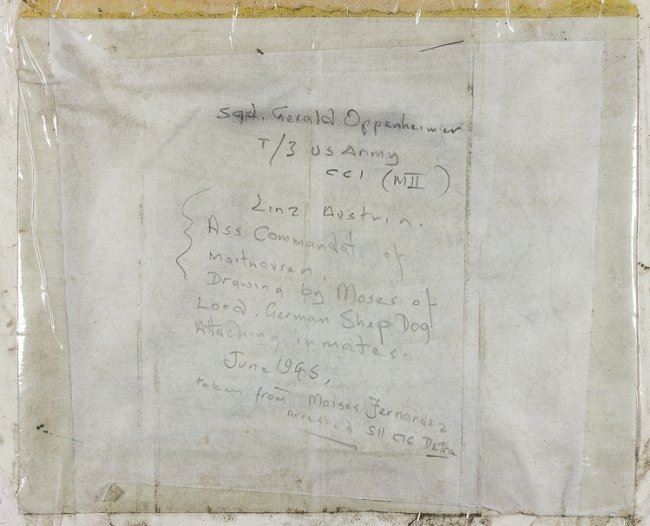 Sgd. Gerald Oppenheimer
T/3 US Army
CCI (MII)
Linz Austria.
Ass Commandat of
Mauthausen.
Drawing by Moses of
Lord. German Shep Dog
Attaching inmates.
June 1945,
taken from Moises Fernandez
Arrested